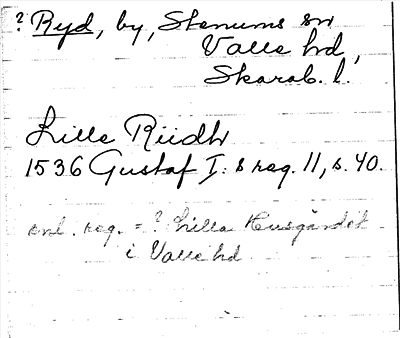 ? Ryd, by, Stenums sn
Valle hd,
Skarab. l.
Lille Riidh
1536 Gustaf I:s reg. 11, s. 40.
enl. reg. = ? Lilla Husgärdet
i Valle hd